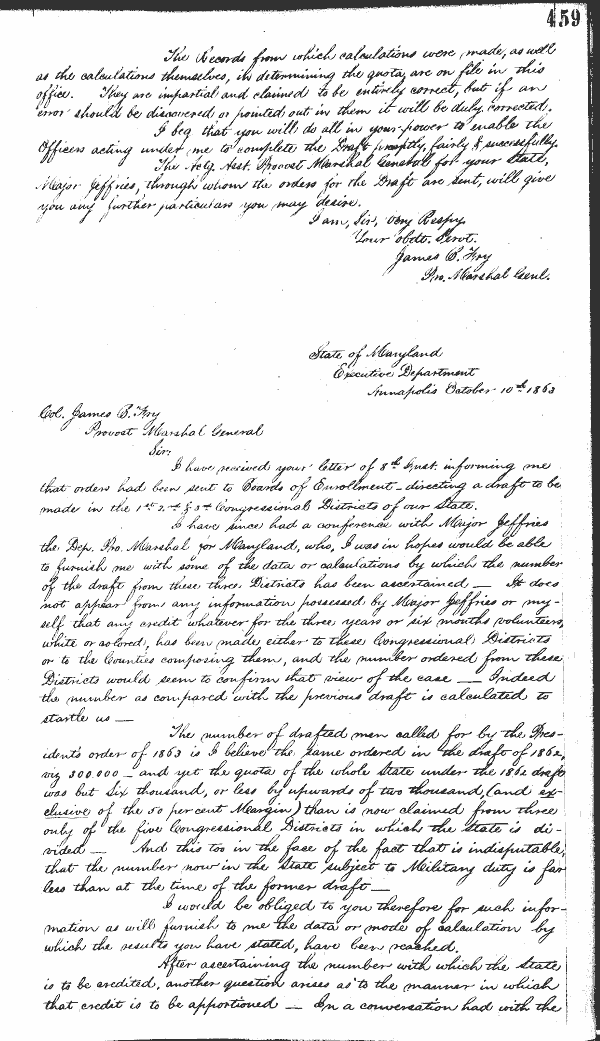 459
The Records from which calculations were made, as well
as the calculations themselves, in determining the quota, are on file in this
office. They are impartial and claimed to be entirely correct, but if an
error should be discovered or pointed out in them it will be duly corrected.
I beg that you will do all in your power to enable the
Officers acting under me to complete the Draft promptly, fairly & successfully.
The Actg. Asst. Provost Marshal General for your State,
Major Jeffries, through whom the orders for the Draft are sent, will give
you any further particulars you may desire.
I am, Sir, Very Respy.
Your obdt. Servt.
James B. Fry
Pro. Marshal Genl.
State of Maryland
Executive Department
Annapolis October 10th 1863
Col. James B. Fry
Provost Marshal General
Sir:
I have received your letter of 8th Inst. informing me
that orders had been sent to Boards of Enrollment - directing a draft to be
made in the 1st 2nd & 3d Congressional Districts of our State.
I have since had a conference with Major Jeffries
the Dep. Pro. Marshal for Maryland, who, I was in hopes would be able
to furnish me with some of the data or calculations by which the number
of the draft from these three Districts has been ascertained — It does
not appear from any information possessed by Major Jeffries or my-
self that any credit whatever for the three years or six months volunteers,
white or colored, has been made either to these Congressional Districts
or to the Counties composing them, and the number ordered from these
Districts would seem to confirm that view of the case — Indeed
the number as compared with the previous draft is calculated to
startle us —
The number of drafted men called for by the Pres-
ident's order of 1863 is I believe the same ordered in the draft of 1862,
viz 300.000 - and yet the quota of the whole State under the 1862 draft
was but Six thousand, or less by upwards of two thousand, (and ex-
clusive of the 50 per cent Margin) than is now claimed from three
only of the five Congressional Districts in which the State is di-
vided — And this too in the face of the fact that is indisputable,
that the number now in the State subject to Military duty is far
less than at the time of the former draft —
I would be obliged to you therefore for such infor-
mation as will furnish to me the data or mode of calculation by
which the results you have stated, have been reached.
After ascertaining the number with which the State
is to be credited, another question arises as to the manner in which
that credit is to be apportioned — In a conversation had with the